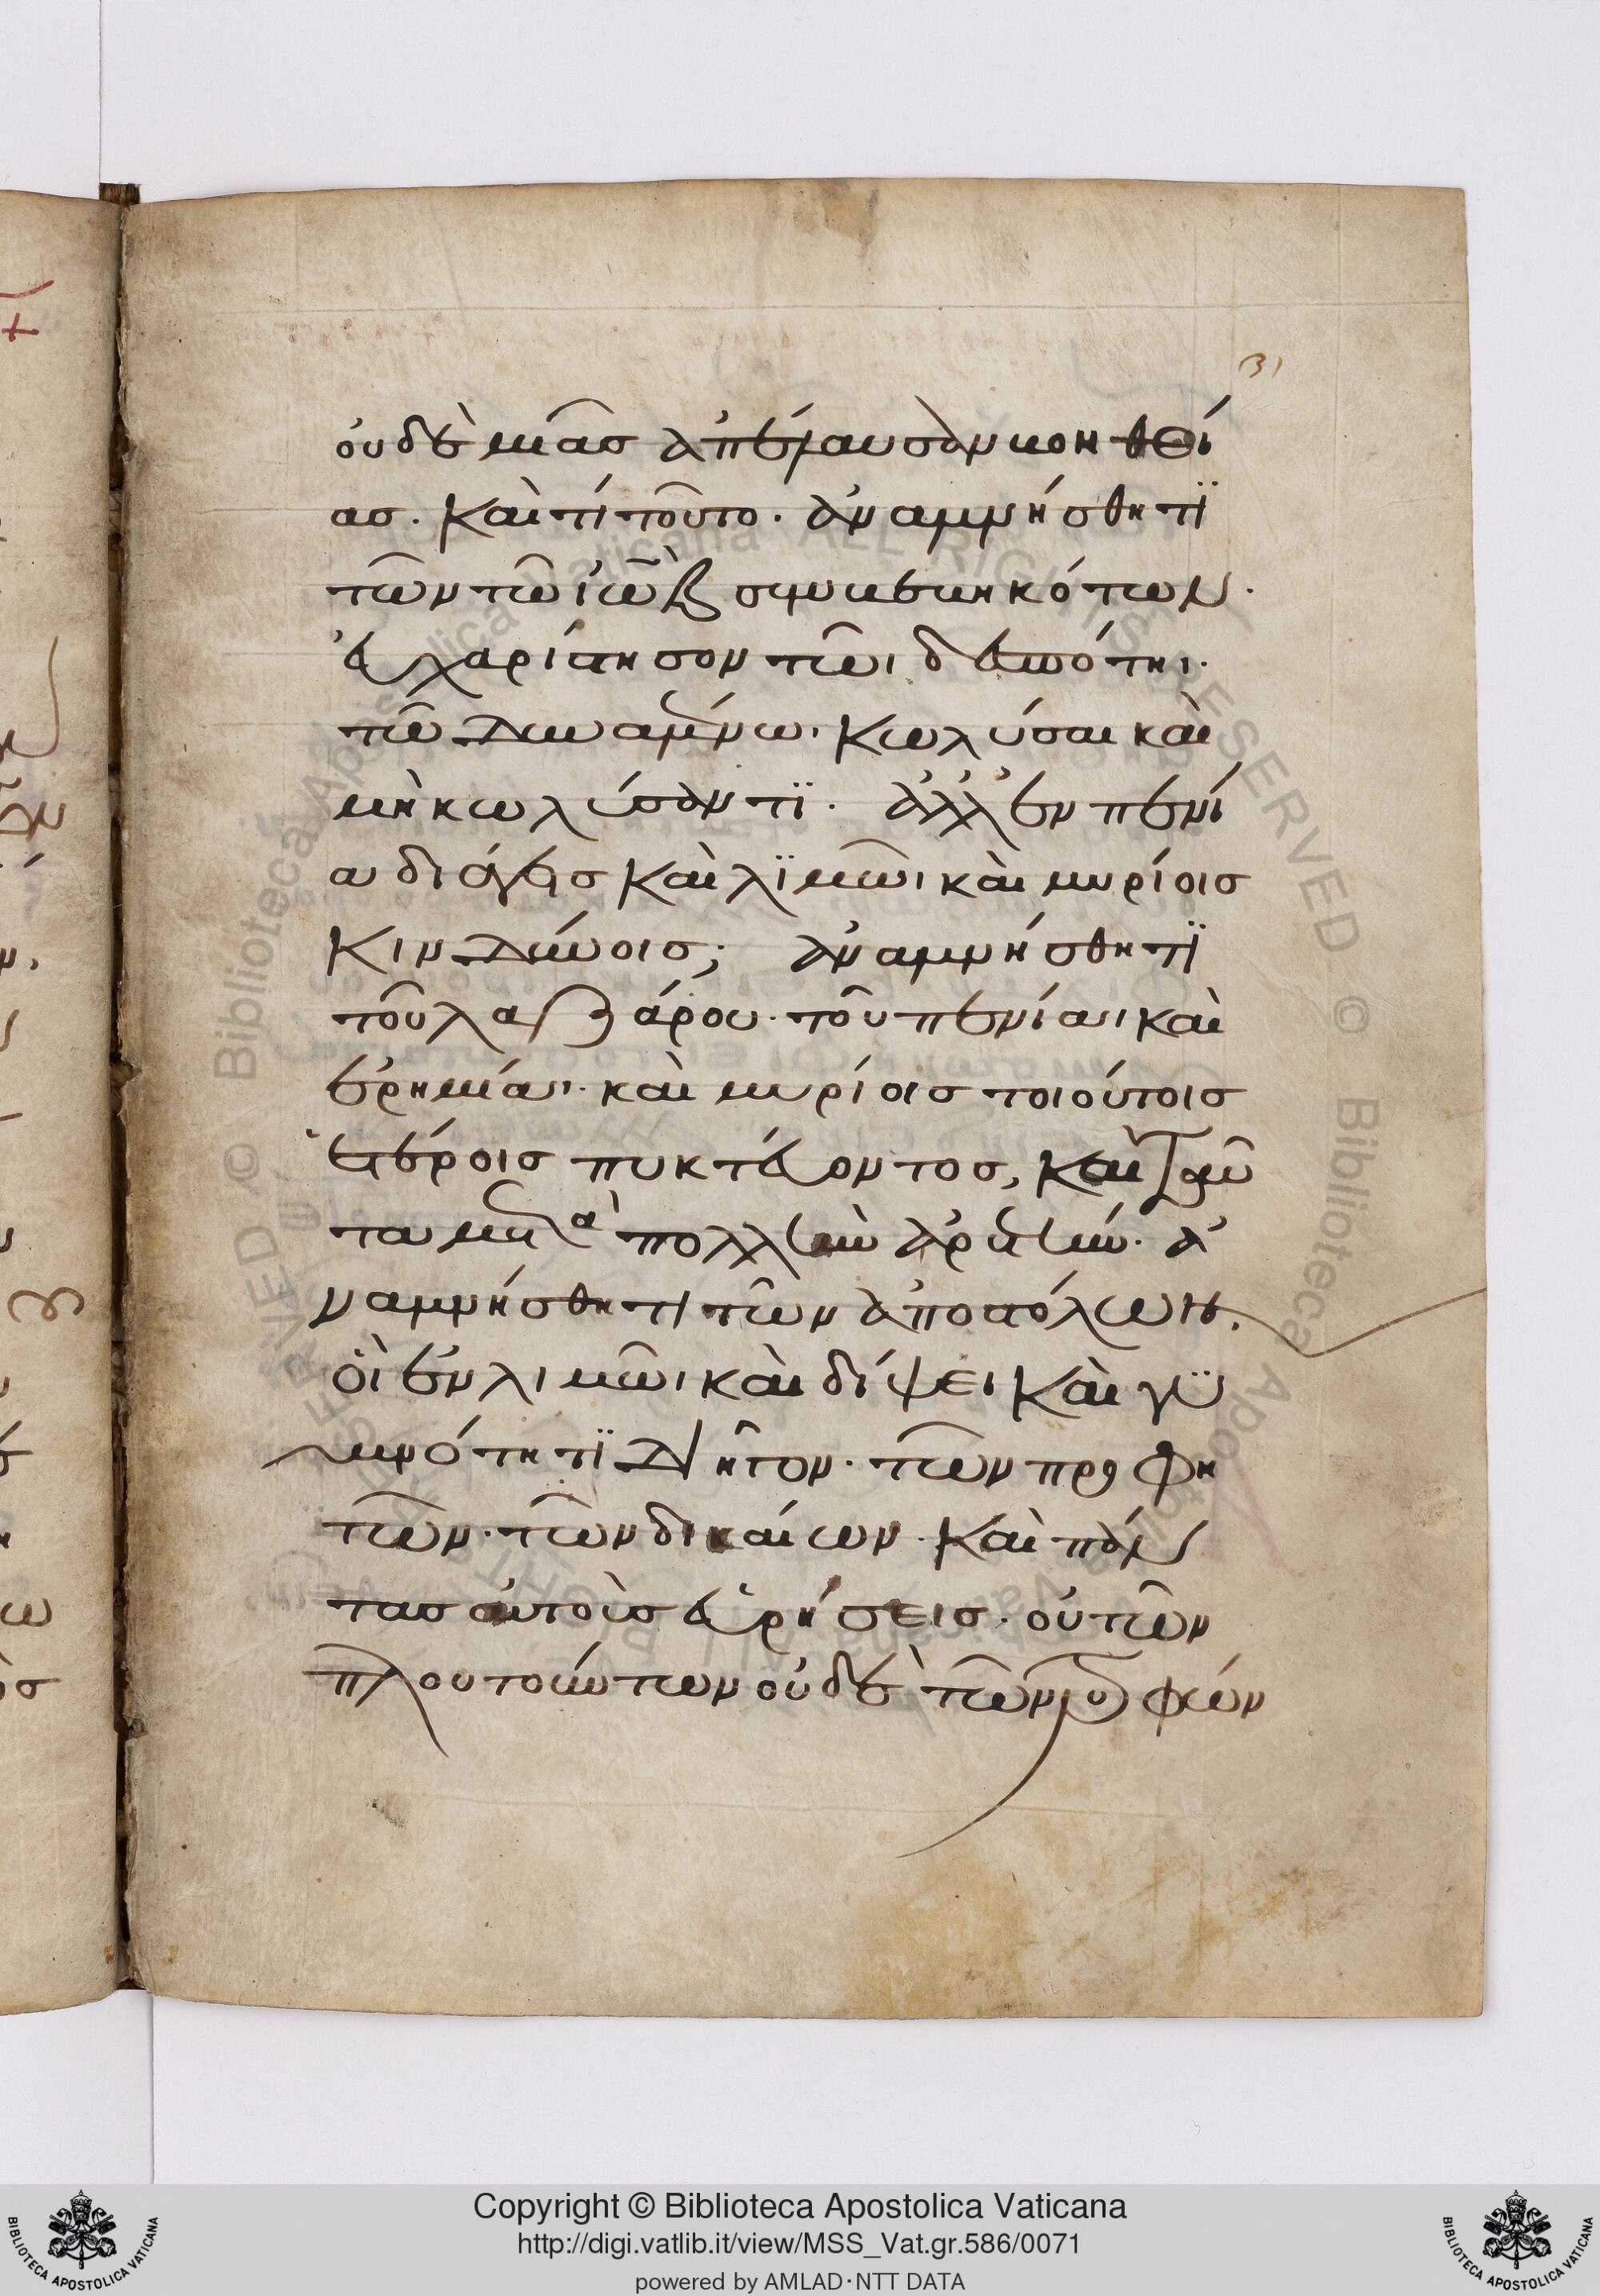 31
οὐδὲ μιᾶσ ἀπέλαυσαν βοηθεί
ασ. καὶ τί τοῦτο. ἀναμνήσθητϊ
τῶν τῶ ἰὼβ συμβεβηκότων.
εὐχαρίστησον τῶι δεσπότηι.
τῶ δυναμένω κωλῦσαι καὶ
μὴ κωλύσαντϊ. ἀλλ' ἐν πενί
αι διάγεισ καὶ λϊμῶι καὶ μυρίοισ
κινδύνοισ; ἀναμνήσθητϊ
τοῦ λαζάρου. τοῦ πενίαι καὶ
ἐρημίαι. καὶ μυρίοισ τοιούτοισ
ἑτέροισ πυκτεύοντοσ, καὶ ταῦ
τα μετὰ πολλὴν ἀρετήν. ἀ
ναμνήσθητι τῶν ἀποστόλων.
οἳ ἐν λιμῶι καὶ δίψει καὶ γϋ
μνότητϊ διῆγον. τῶν προφη
τῶν. τῶν δικαίων. καὶ πάν
τασ αὐτοὺσ εὑρήσεισ. οὐ τῶν
πλουτούντων οὐδὲ τῶν τρυφών
Copyright © Biblioteca Apostolica Vaticana
http://digi.vatlib.it/view/MSS_Vat.gr.586/0071
powered by AMLAD·NTT DATA
BIBLIOTECA APOSTOLICA VATICANA
BIBLIOTECA APOSTOLICA VATICANA